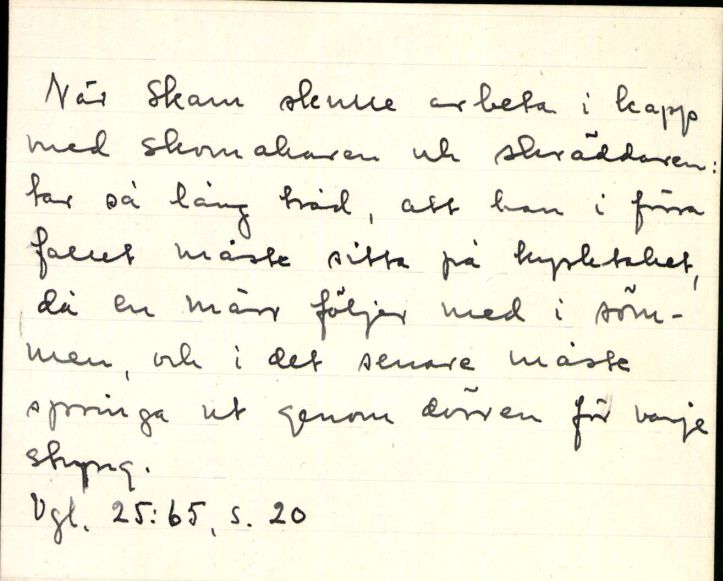 När Skam skulle arbeta i kapp
med skomakaren och skräddaren:
tar så lång tråd, att han i förra
fallet måste sitta på kyrktaket,
då en märr följer med i söm-
men, och i det senare måste
springa ut genom dörren för varje
styng.
Vgl. 25:65, s. 20